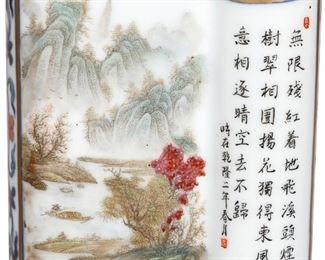 無限殘紅着地飛溪頭煙
樹翠相圍楊花獨得東風
意相逐晴空去不歸
時在乾隆二年春月